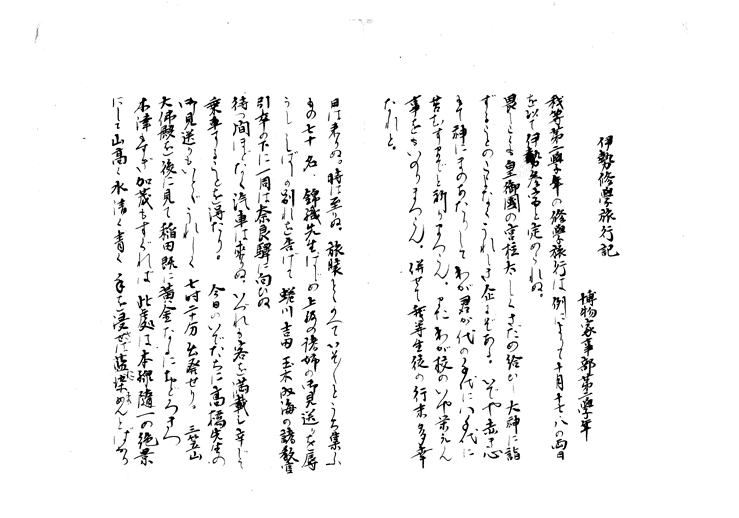 伊勢修學旅行記
博物家事部第一學年
我等第一學年の修學旅行は例によりて十月十七八の両日
を以て伊勢参宮と定められぬ。
畏くも皇御國の宮柱太しくさだめ給かし大神に詣
ずることのことなくうれしき企にぞある。いでや赤き心
もて神にまのあたりしてわが君が代の千代に八千代に
苔むすまでと祈りまつらん。またわが校のいや栄えん
事をもいのりまつらん。併せて我等生徒の行末多幸
なれと。
日は来りぬ。時は至りぬ。旅装とゝのへていそいそとうち集ふ
もの七十名、錦織先生はじめ上級の諸姉の御見送りを辱
うし、しばしの別れを告げて 蜷川 吉田 玉木 双海の諸教官
引卒の下に一同は奈良驛に向ひぬ
待つ間ほどなく汽車は来りぬ。いづれも客を満載し辛じて
乗車することを得たり。 今日のいでたちに高橋先生の
御見送りもいとゞうれしく 七時二十分出發せり。 三笠山
大佛殿を後に見て 稲田既に黄金なすにおどろきつ
木津もすぎ加茂もすぐれば 此處は本線随一の絶景
にして山高く水清く青く 手を浸せば藍染めんとばかり